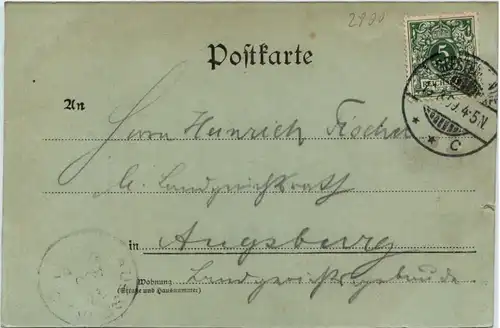 2990
Postkarte
5
An
Herrn Heinrich Fischer
k. Landgerichtsrath
in Augsburg
Wohnung
(Straße und Hausnummer)
Landgerichtsgebäude.
4-5N.
* * C